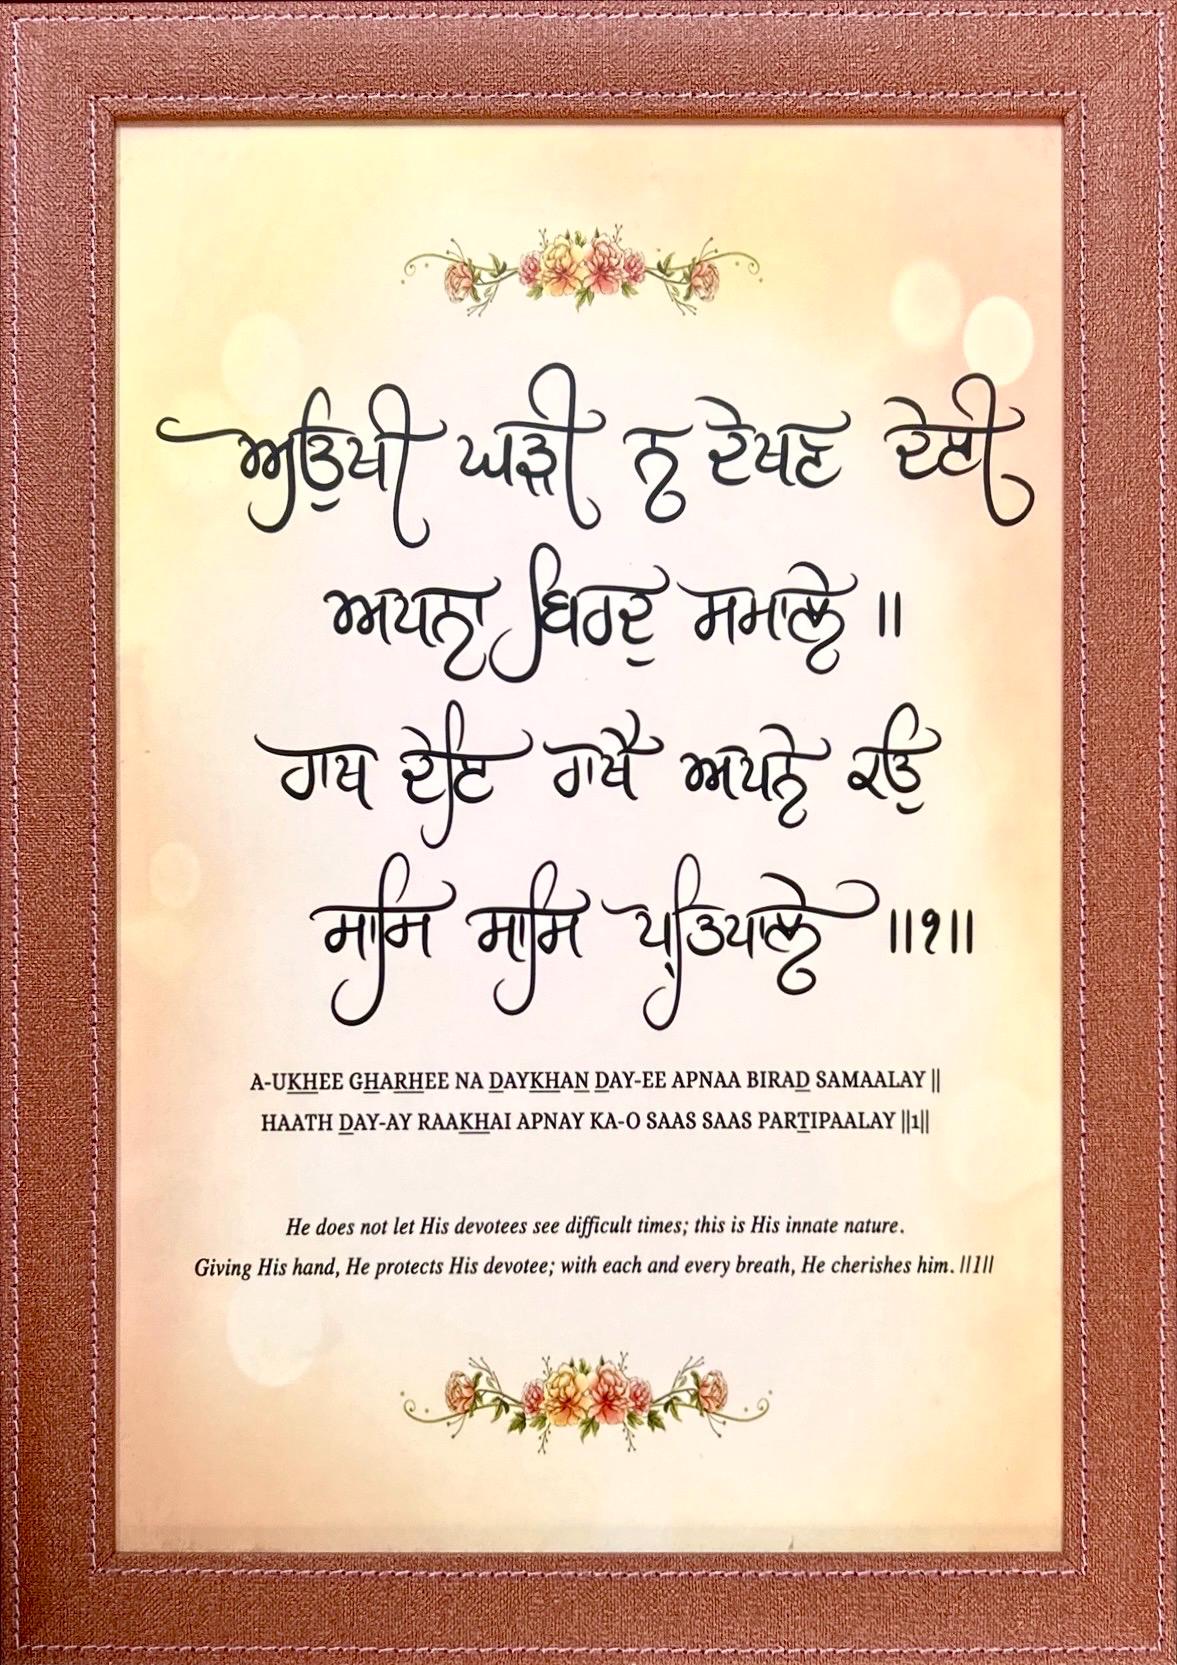 ਅਉਖੀ ਘੜੀ ਨ ਦੇਖਣ ਦੇਈ
ਅਪਨਾ ਬਿਰਦੁ ਸਮਾਲੇ ॥
ਹਾਥ ਦੇਇ ਰਾਖੈ ਅਪਨੇ ਕਉ
ਸਾਸਿ ਸਾਸਿ ਪ੍ਰਤਿਪਾਲੇ ॥੧॥
A-UKHEE GHARHEE NA DAYKHAN DAY-EE APNAA BIRAD SAMAALAY ||
HAATH DAY-AY RAAKHAI APNAY KA-O SAAS SAAS PARTIPAALAY ||1||
He does not let His devotees see difficult times; this is His innate nature.
Giving His hand, He protects His devotee; with each and every breath, He cherishes him. ||1||